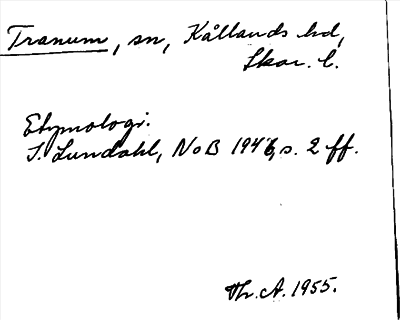 Tranum, sn, Kållands hd,
Skar. l.
Etymologi.
I. Lundahl, NoB 1946, s. 2 ff.
Th. A. 1955.